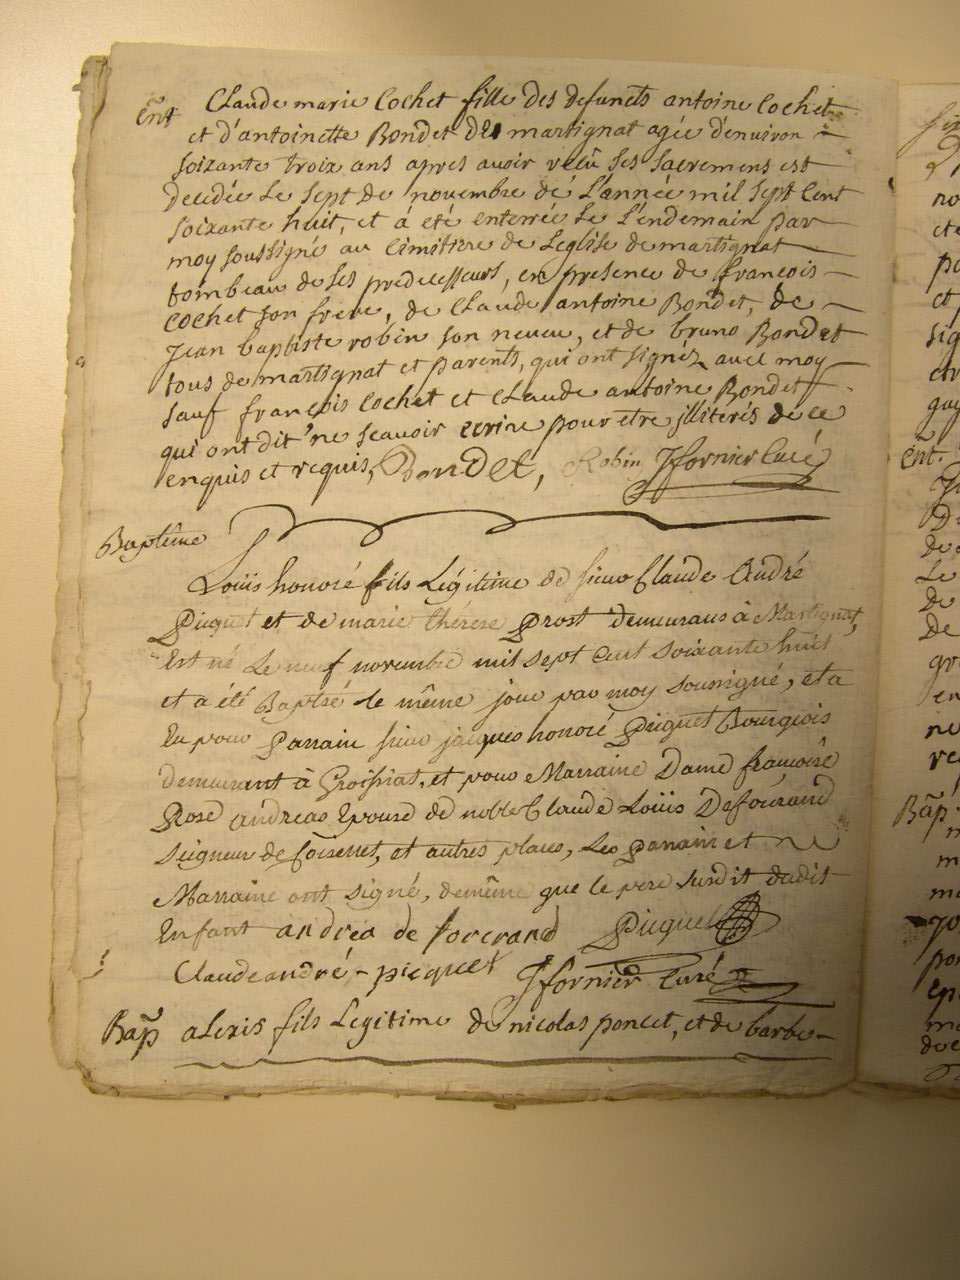 Ent Claude marie Cochet fille des defuncts antoine Cochet
et d'antoinette Bondet de martignat agée d'environ
soixante troix ans apres auoir reçû ses sacremens est
decedée Le sept de novembre dé L'année mil sept Cent
soixante huit, et á eté enterrée Le L'endemain par
moy soussigné au Cimitiere de Leglise de martignat
tombeau de ses predecesseurs, en presence de françois
Cochet son frere, de Claude antoine Bondet, de
Jean baptiste robin son neueu, et de bruno Bondet
tous de martignat et parents, qui ont signéz auec moy
sauf françois Cochet et Claude antoine Bondet
qui ont dit ne scauoir ecrire pour etre illiterés de ce
enquis et requis, Bondet, Robin Jfornier Curé
Baptême
Loüis honoré fils Légitime de sieur Claude André
Picquet et de marie thérese Prost demeurans à Martignat,
Est né Le neuf novembre mil sept cent soixante huit
et a été Baptisé le même jour par moy soussigné, et a
Eu pour Parrain sieur jacques honoré Picquet Bourgeois
demeurant à Groissiat, et pour Marraine Dame françoise
Rose andréas Epouse de noble Claude Loüis Deforcrand
Seigneur de Coiserret, et autres places, Les Parrain et
Marraine ont signé, demême que le pere susdit dudit
Enfant andréa de forcrand Picquet
Claude andré - picquet Jfornier Curé
Bap alexis fils Legitime de nicolas poncet, et de barbe
ent.
Bap.